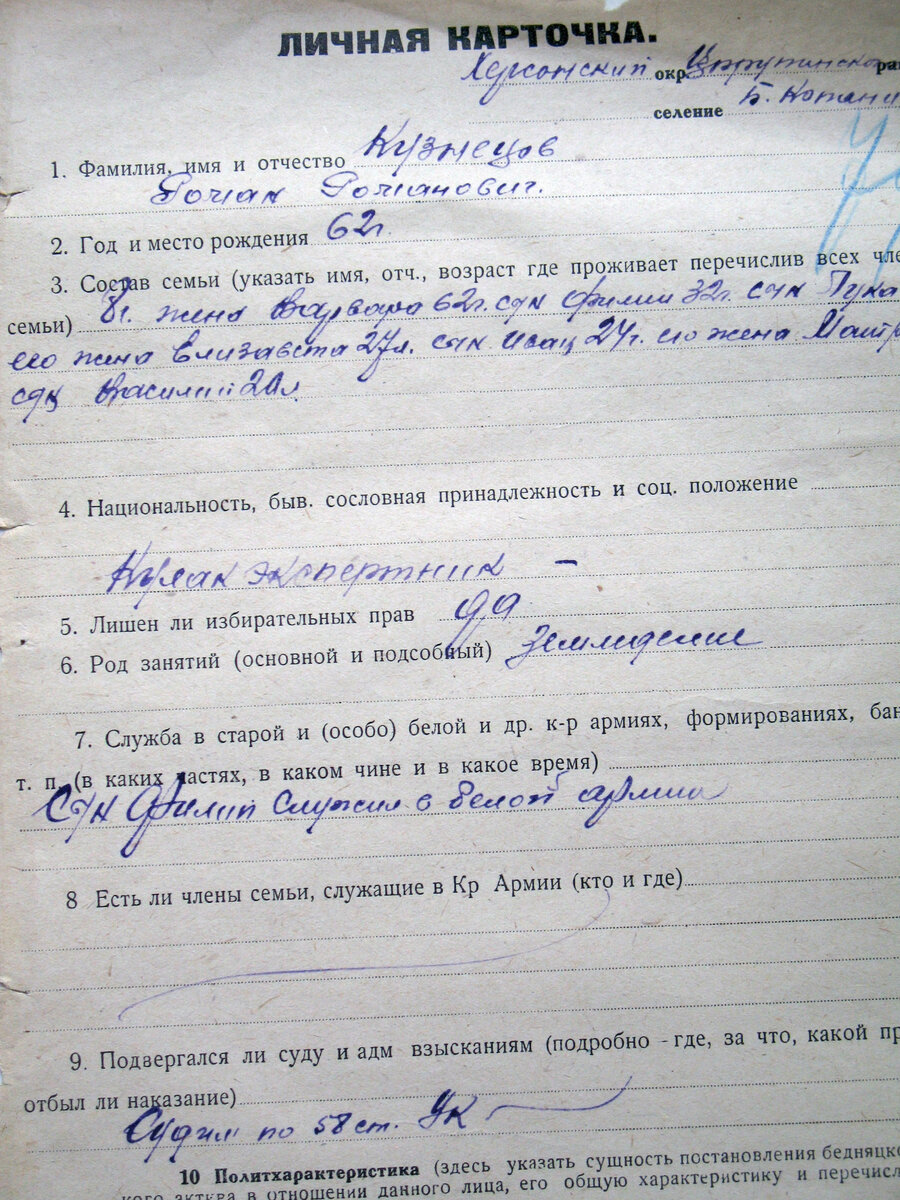 ЛИЧНАЯ КАРТОЧКА.
Херсонский окр Цюрупинско ра
селение Б. Копани
1. Фамилия, имя и отчество Кузнецов
Роман Романович.
2. Год и место рождения 62г.
3. Состав семьи (указать имя, отч., возраст где проживает перечислив всех чле
семьи) жена Варвара 62г. сын Филип 32г. сын Лука
его жена Елизавета 27л. сын Исац 24г. его жена Матр
сын Василий 20л
4. Национальность, быв. сословная принадлежность и соц. положение
Кулак экспертник —
5. Лишен ли избирательных прав да
6. Род занятий (основной и подсобный) Земледелие
7. Служба в старой и (особо) белой и др. к-р армиях, формированиях, бан
т. п. (в каких частях, в каком чине и в какое время)
Сын Филип служил в белой армии
8 Есть ли члены семьи, служащие в Кр Армии (кто и где)
9. Подвергался ли суду и адм взысканиям (подробно - где, за что, какой пр
отбыл ли наказание)
Судим по 58 ст. УК
10 Политхарактеристика (здесь указать сущность постановления бедняцко
кого актива в отношении данного лица, его общую характеристику и перечисл